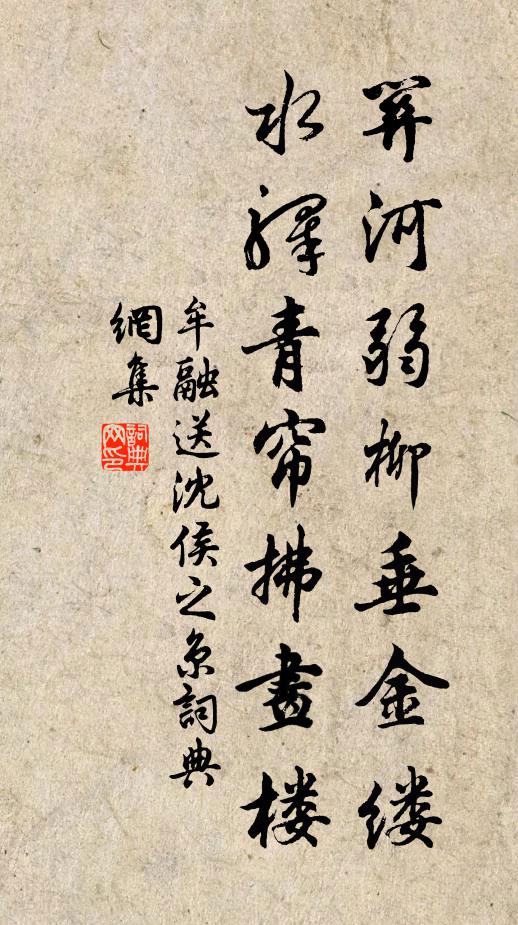 关河弱柳垂金缕
水驛青帘拂畫楼
牟融送沈侯之京詞典
網集
詞典
网印